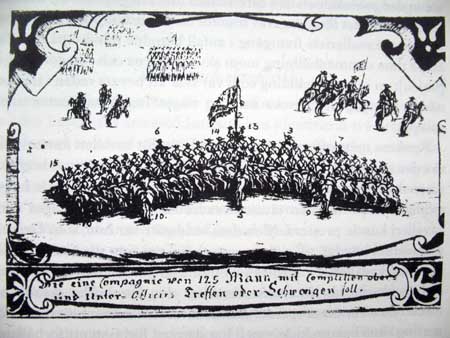 6 14 13 3
15
10. 5 0 12
Wie eine Compagnie von 125 Mann mit Completten ober
und Unter-Officirs Treffen oder Schwengen soll.